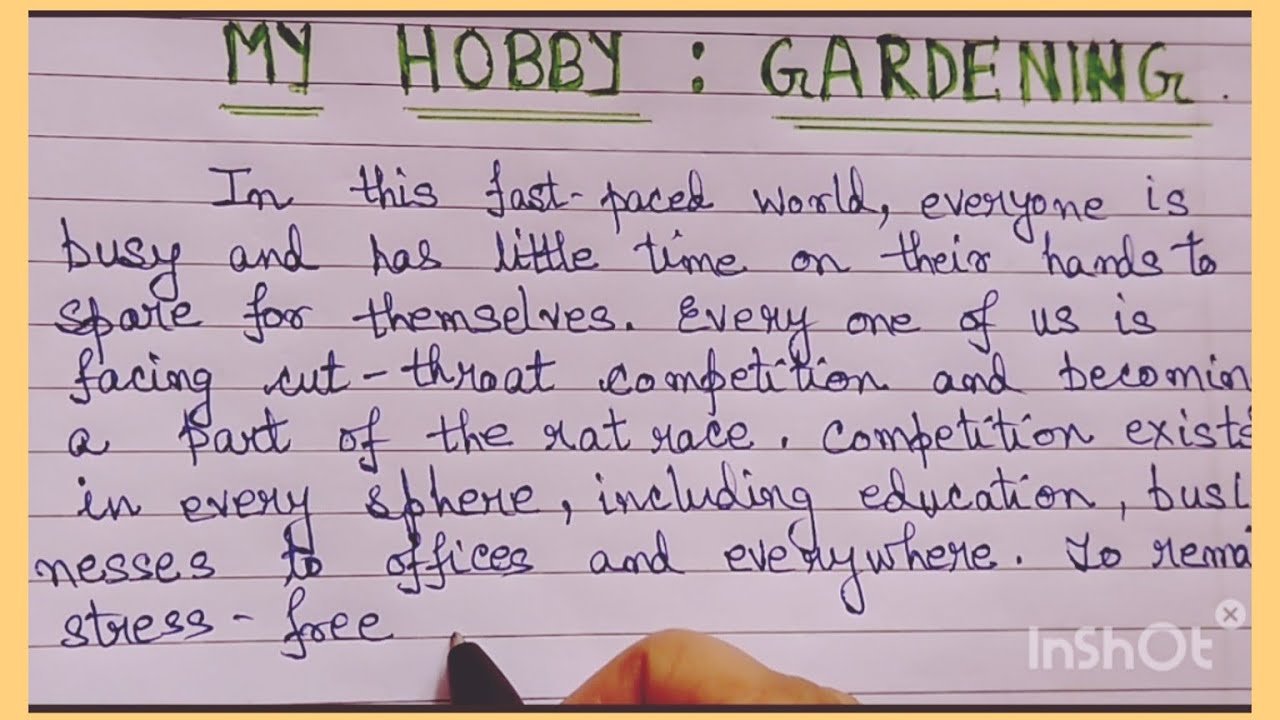 MY HOBBY : GARDENING.
In this fast-paced world, everyone is
busy and has little time on their hands to
spare for themselves. Every one of us is
facing cut-throat competition and becomin
a part of the rat race. Competition exists
in every sphere, including education, busi
nesses to offices and everywhere. To rema
stress-free
InShOt